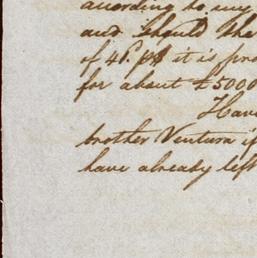 according to my
and should the
of 41. p$ it is pro
for about £5000
Have
brother Ventura if
have already left